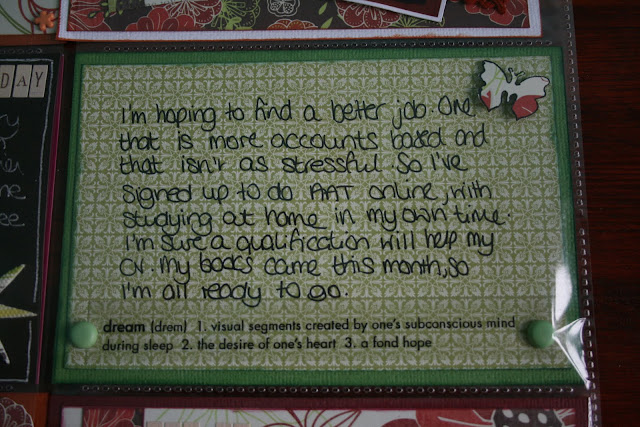 DAY
I'm hoping to find a better job. One
that is more accounts based and
that isn't as stressful. So I've
signed up to do AAT online, with
studying at home in my own time.
I'm sure a qualification will help my
CV. My books came this month, so
I'm all ready to go.
dream (drem) 1. visual segments created by one's subconscious mind
during sleep 2. the desire of one's heart 3. a fond hope